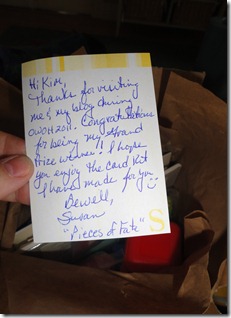 Hi Kim,
Thanks for visiting
me & my blog during
OWOH 2011. Congratulations
for being my Grand
Prize winner! I hope
you enjoy the card kit
I have made for you
Bewell,
Susan
"Pieces of Fate"
S